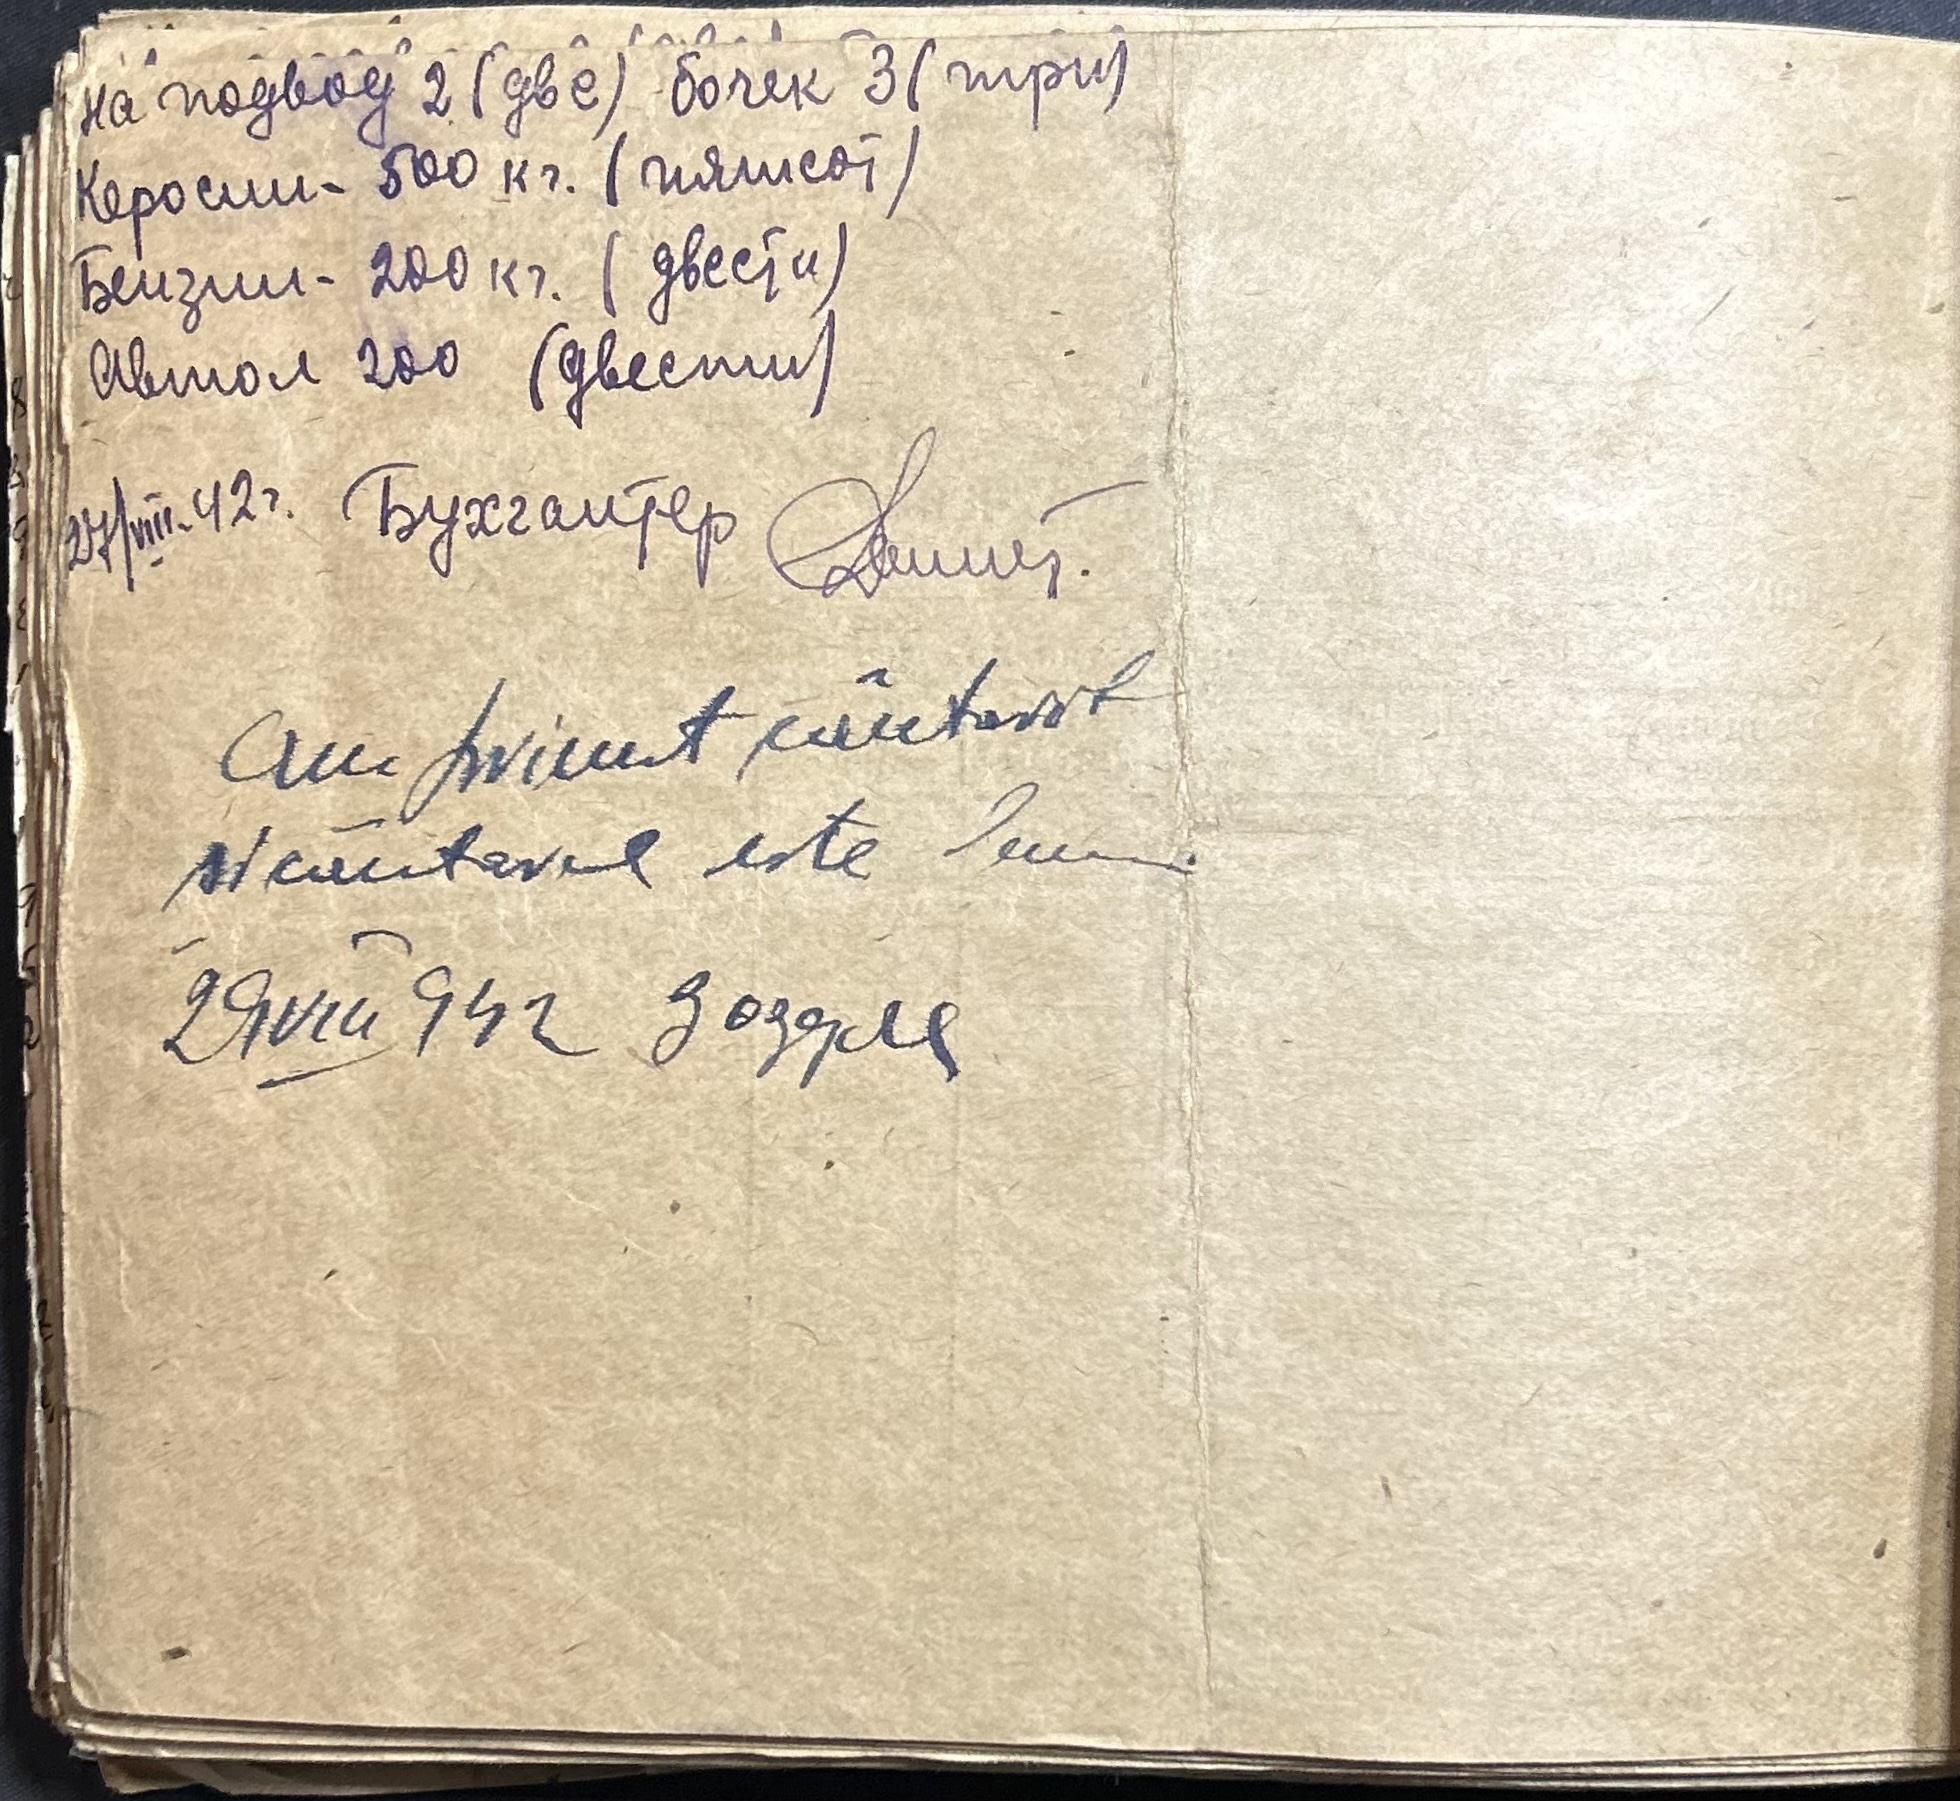 на подвод 2 (две) бочек 3 (три)
Керосин - 500 кг. (пятсот)
Бензин - 200 кг. (двести)
Автол 200 (двести)
27/VIII-42 г. Бухгалтер
Am primit cântarit
si cântarul este bun
29 VIII 942